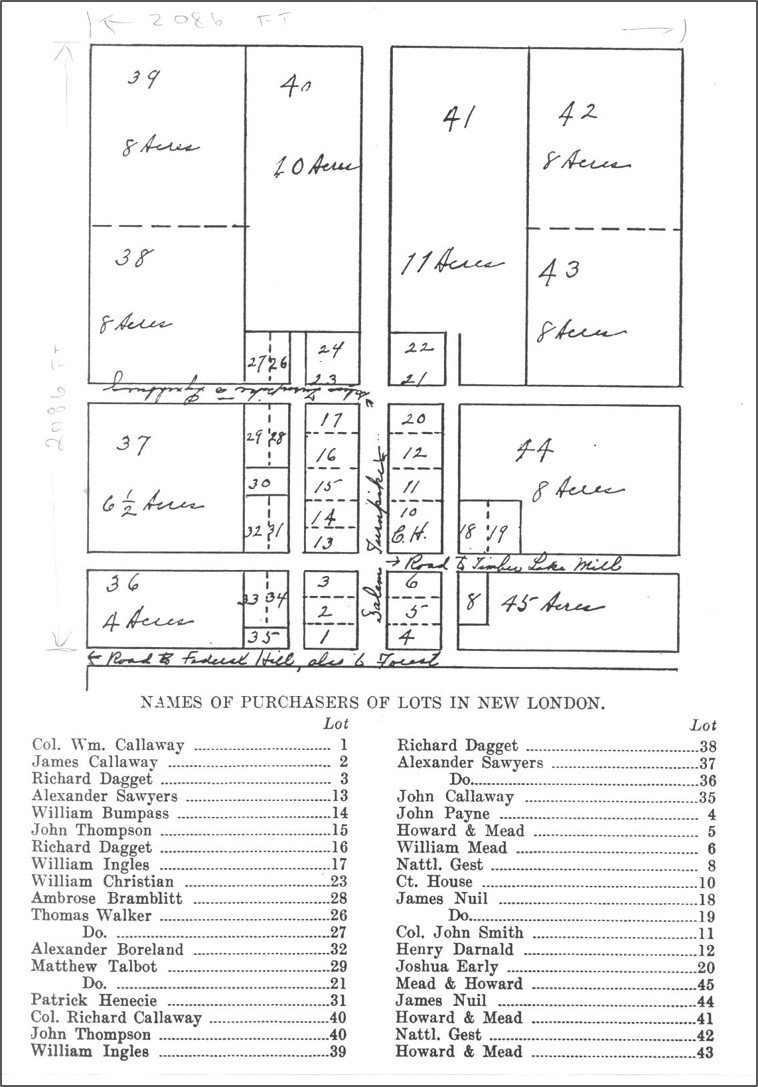 2086 FT
39
8 Acres
40
10 Acres
41
11 Acres
42
8 Acres
38
8 Acres
43
8 Acres
2086 FT
27 26
24
23
22
21
Salem Turnpike to Lynchburg
37
6 1/2 Acres
29 28
30
32 31
17
16
15
14
13
20
12
11
10
C.H.
44
8 Acres
18 19
Salem Turnpike
→ Road to Timber Lake Mill
36
4 Acres
33 34
35
3
2
1
6
5
4
8
45 Acres
← Road to Federal Hill, also to Forest
NAMES OF PURCHASERS OF LOTS IN NEW LONDON.
Lot
Col. Wm. Callaway 1
James Callaway 2
Richard Dagget 3
Alexander Sawyers 13
William Bumpass 14
John Thompson 15
Richard Dagget 16
William Ingles 17
William Christian 23
Ambrose Bramblitt 28
Thomas Walker 26
Do. 27
Alexander Boreland 32
Matthew Talbot 29
Do. 21
Patrick Henecie 31
Col. Richard Callaway 40
John Thompson 40
William Ingles 39
Lot
Richard Dagget 38
Alexander Sawyers 37
Do. 36
John Callaway 35
John Payne 4
Howard & Mead 5
William Mead 6
Nattl. Gest 8
Ct. House 10
James Nuil 18
Do. 19
Col. John Smith 11
Henry Darnald 12
Joshua Early 20
Mead & Howard 45
James Nuil 44
Howard & Mead 41
Nattl. Gest 42
Howard & Mead 43